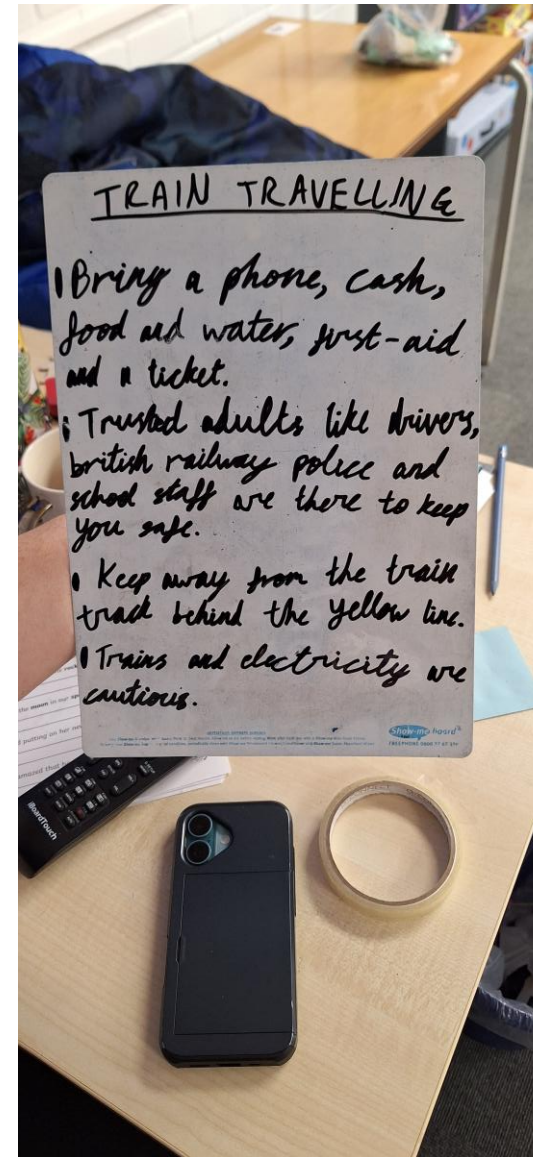 TRAIN TRAVELLING
• Bring a phone, cash,
food and water, first-aid
and a ticket.
• Trusted adults like drivers,
british railway police and
school staff are there to keep
you safe.
• Keep away from the train
track behind the yellow line.
• Trains and electricity are
cautious.
Show-me board
TELEPHONE 0800 77 67 594
the moon in our
putting on her
amazed that
iBoardTouch